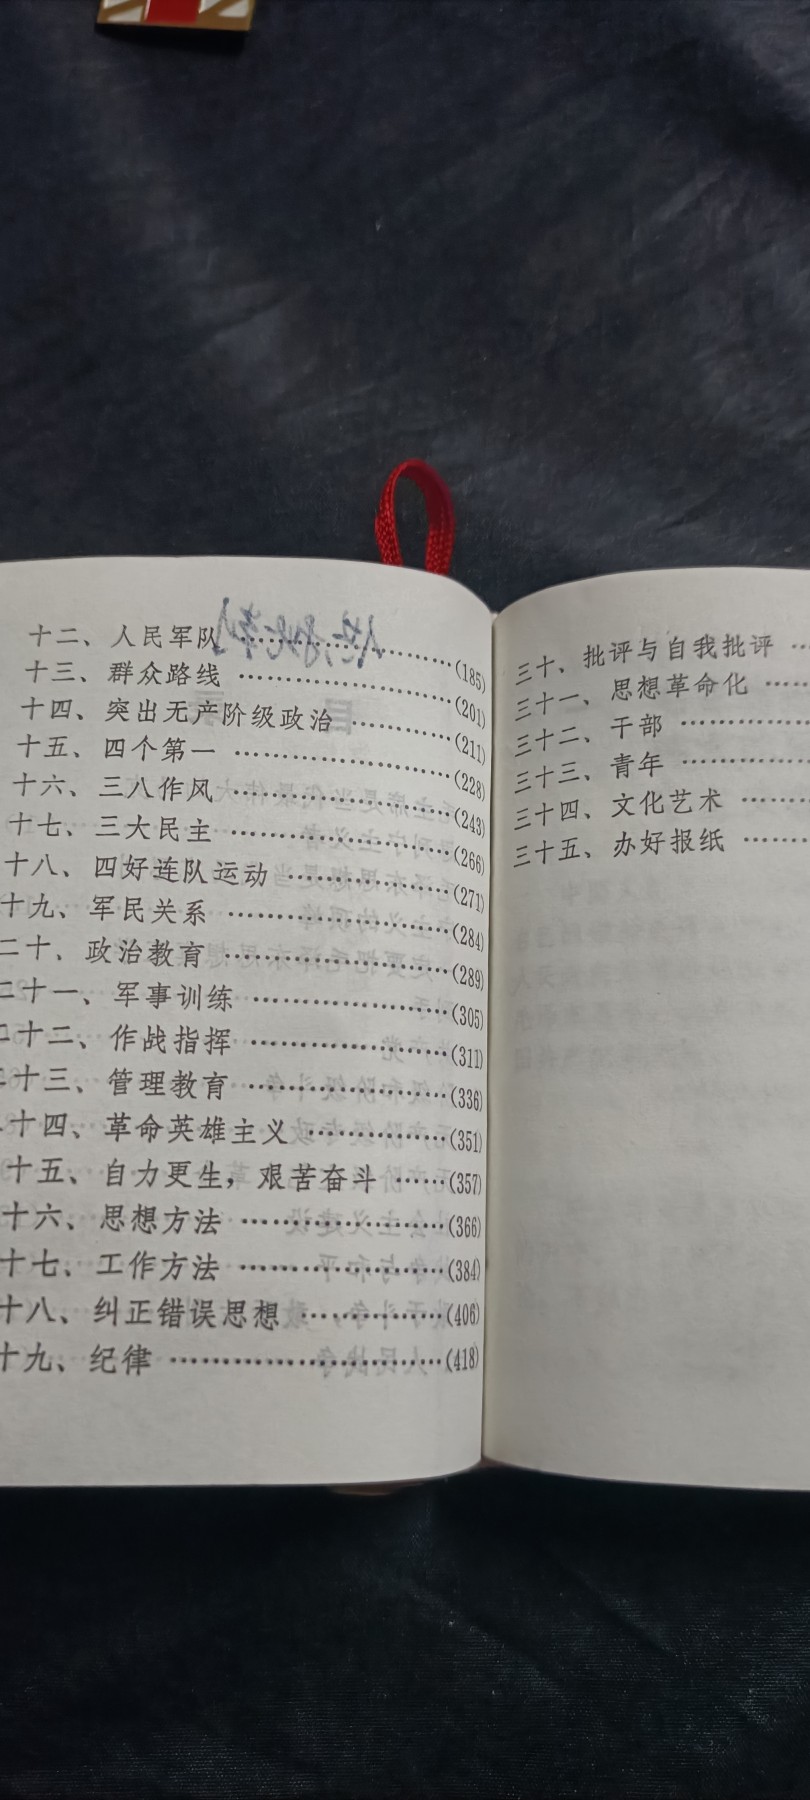 十二、人民军队 ……………(185)
十三、群众路线 ……………(201)
十四、突出无产阶级政治 ……………(211)
十五、四个第一 ……………(228)
十六、三八作风 ……………(243)
十七、三大民主 ……………(266)
十八、四好连队运动 ……………(271)
十九、军民关系 ……………(284)
二十、政治教育 ……………(289)
二十一、军事训练 ……………(305)
二十二、作战指挥 ……………(311)
二十三、管理教育 ……………(336)
十四、革命英雄主义 ……………(351)
十五、自力更生，艰苦奋斗 ……(357)
十六、思想方法 ……………(366)
十七、工作方法 ……………(384)
十八、纠正错误思想 ……………(406)
十九、纪律 ……………(418)
三十、批评与自我批评 …
三十一、思想革命化 ……
三十二、干部 ……………
三十三、青年 ……………
三十四、文化艺术 ………
三十五、办好报纸 ………